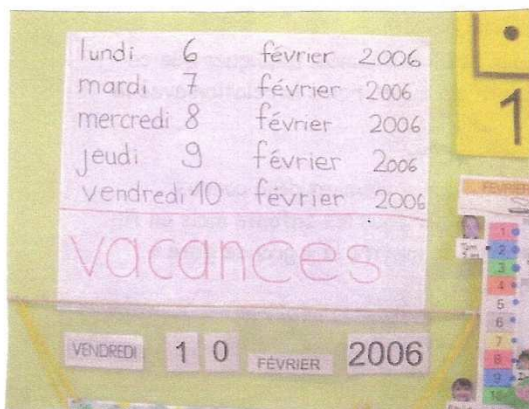 lundi 6 février 2006
mardi 7 février 2006
mercredi 8 février 2006
jeudi 9 février 2006
vendredi 10 février 2006
vacances
VENDREDI 1 0 FÉVRIER 2006
1
FÉVRIER
1
2
3
4
5
6
7
8
9
10